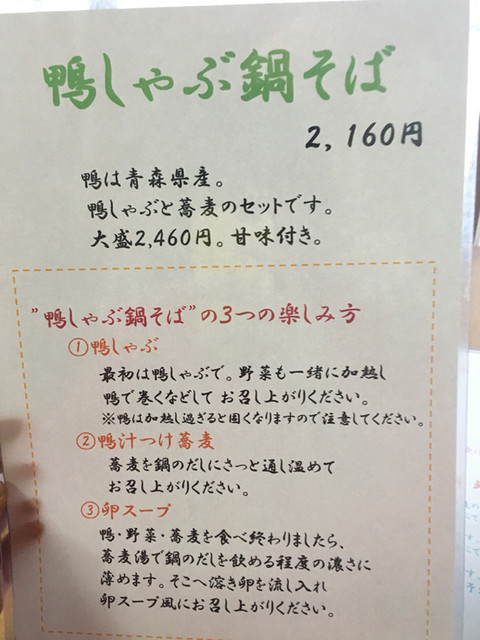 鴨しゃぶ鍋そば
2,160円
鴨は青森県産。
鴨しゃぶと蕎麦のセットです。
大盛2,460円。甘味付き。
"鴨しゃぶ鍋そば"の3つの楽しみ方
①鴨しゃぶ
最初は鴨しゃぶで。野菜も一緒に加熱し
鴨で巻くなどして お召し上がりください。
※鴨は加熱し過ぎると固くなりますので注意してください。
②鴨汁つけ蕎麦
蕎麦を鍋のだしにさっと通し温めて
お召し上がりください。
③卵スープ
鴨・野菜・蕎麦を食べ終わりましたら、
蕎麦湯で鍋のだしを飲める程度の濃さに
薄めます。そこへ溶き卵を流し入れ
卵スープ風にお召し上がりください。